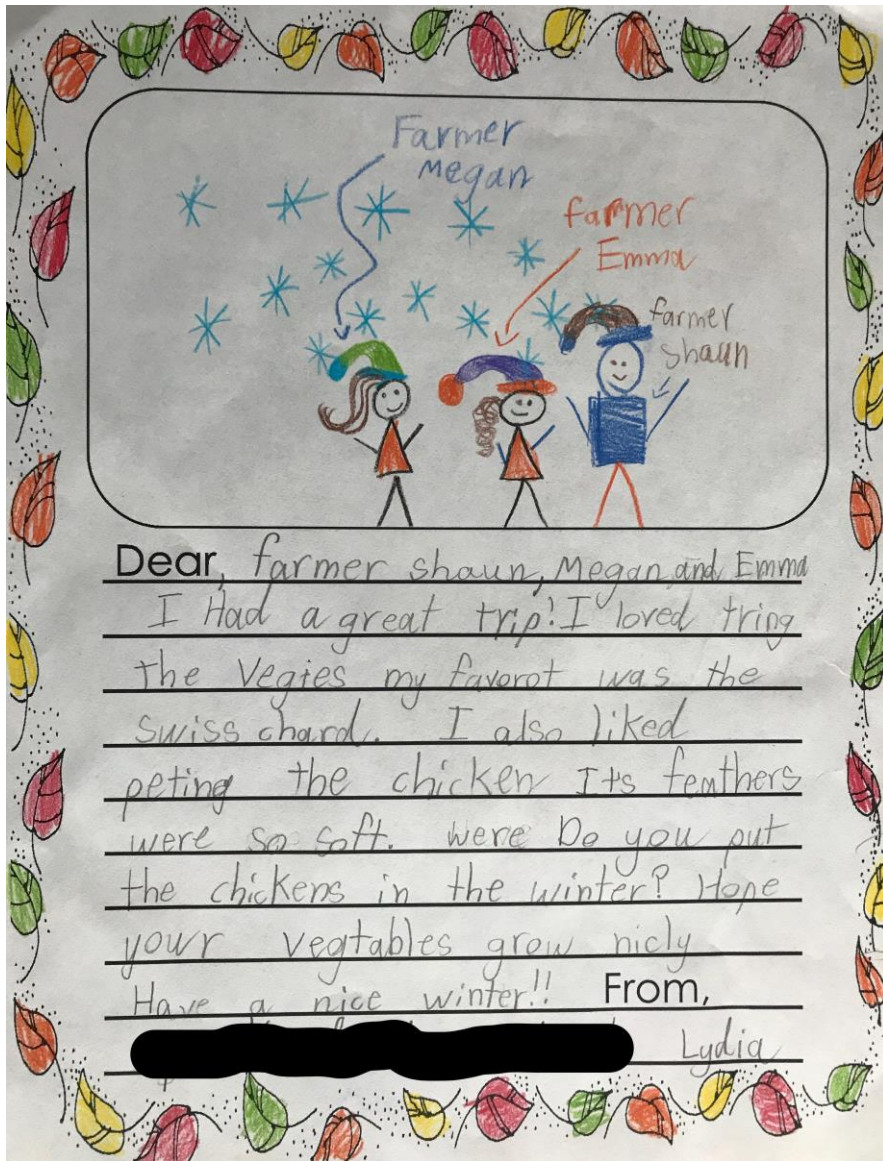 Farmer
Megan
farmer
Emma
farmer
shaun
Dear, farmer shaun, Megan and Emma
I Had a great trip! I loved tring
the vegies my favorot was the
swiss chard. I also liked
peting the chicken Its feathers
were so soft. were Do you put
the chickens in the winter? Hope
your vegtables grow nicly
Have a nice winter!! From,
Lydia